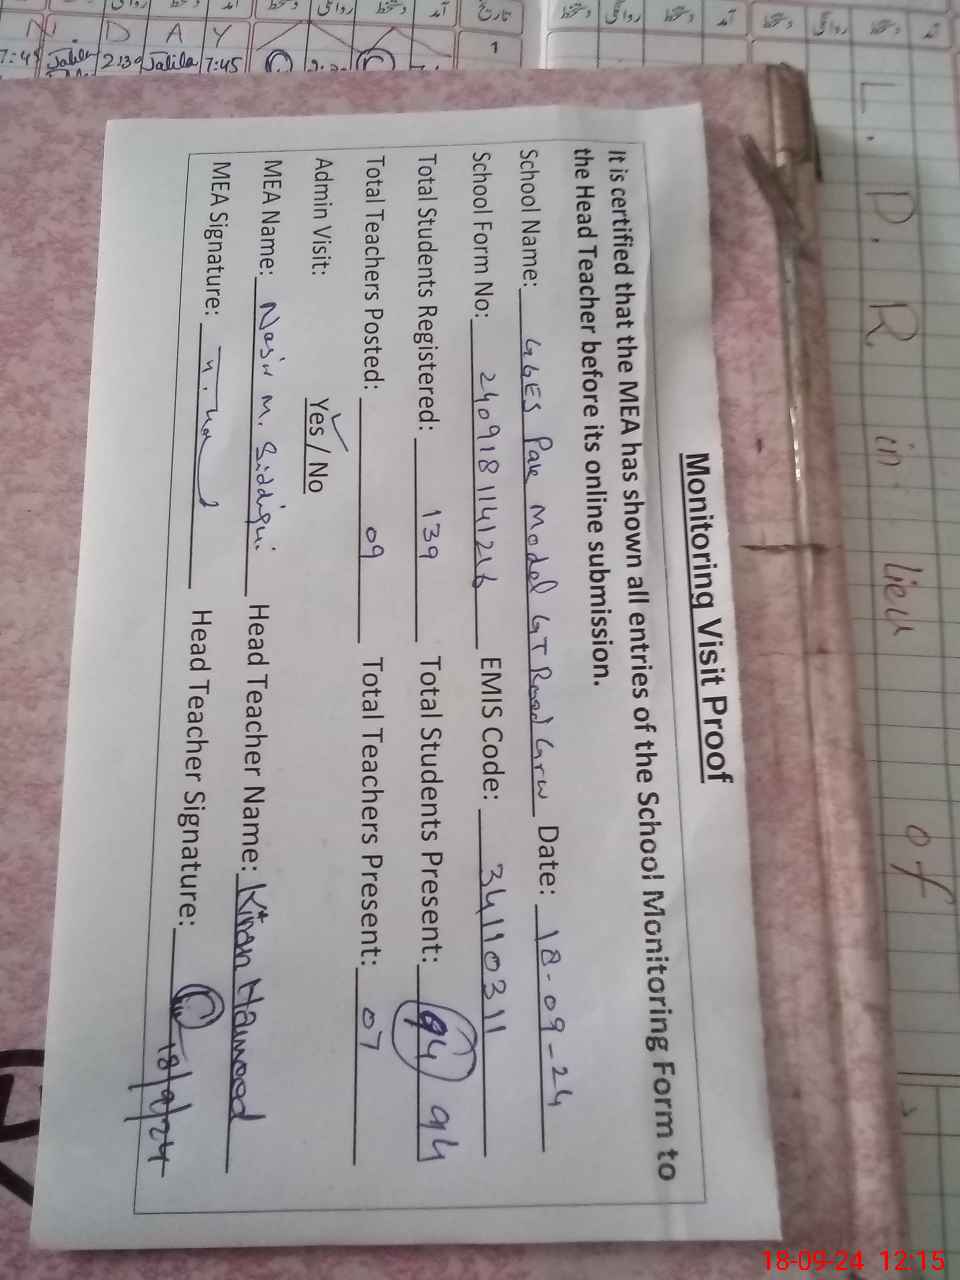 Monitoring Visit Proof
It is certified that the MEA has shown all entries of the School Monitoring Form to
the Head Teacher before its online submission.
School Name: GGES Pak Model GT Road Grw Date: 18-09-24
School Form No: 2409181141216 EMIS Code: 34110311
Total Students Registered: 139 Total Students Present: 94 94
Total Teachers Posted: 09 Total Teachers Present: 07
Admin Visit: Yes / No
MEA Name: Nasir M. Siddiqui Head Teacher Name: Kiran Hamood
MEA Signature: Head Teacher Signature: 18/9/24
L. P. R. in lieu of
D A Y
7:45 Jalila 2:30 Jalila 7:45
18-09-24 12:15